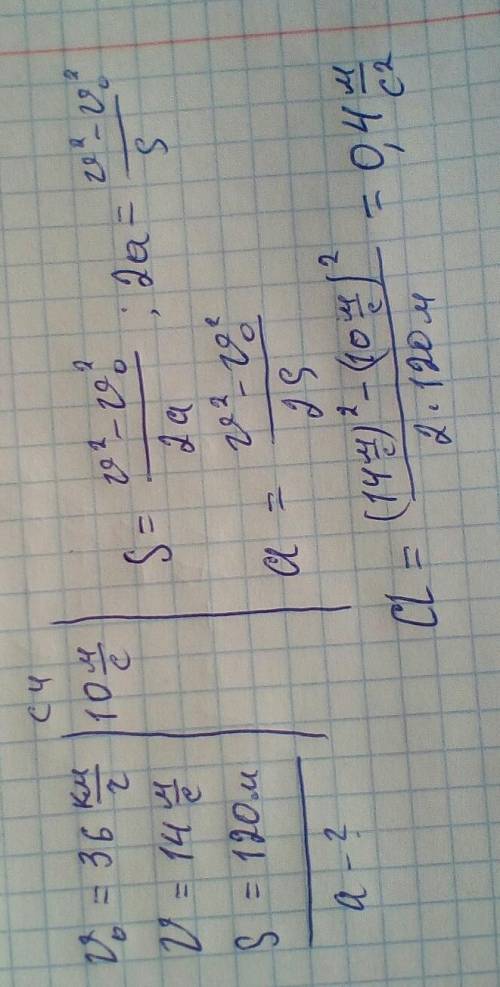 СИ
υ₀ = 36 км/г | 10 м/с
υ = 14 м/с
S = 120 м
a - ?
S = (υ² - υ₀²)/2a ; 2a = (υ² - υ₀²)/S
a = (υ² - υ₀²)/2S
a = ((14 м/с)² - (10 м/с)²)/(2 · 120 м) = 0,4 м/с²